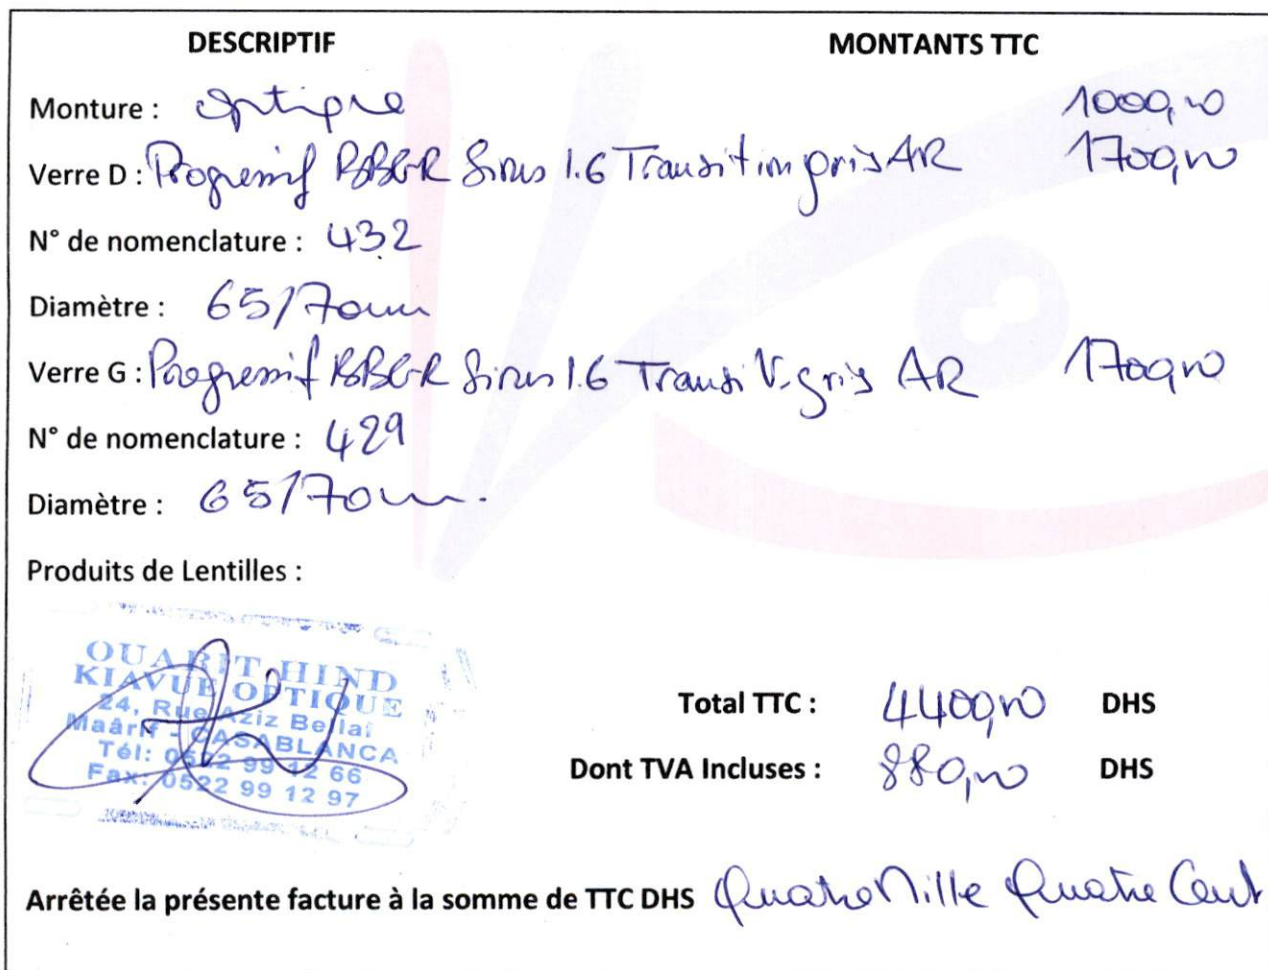 DESCRIPTIF MONTANTS TTC
Monture : Optique 1000,00
Verre D : Progressif BBGR Sirus 1.6 Transition gris AR 1700,00
N° de nomenclature : 432
Diamètre : 65/70mm
Verre G : Progressif BBGR Sirus 1.6 Transi V-gris AR 1700,00
N° de nomenclature : 429
Diamètre : 65/70mm
Produits de Lentilles :
OUARIT HIND
KIAVUE OPTIQUE
24, Rue Aziz Bellal
Maârif - CASABLANCA
Tél: 0522 99 12 66
Fax: 0522 99 12 97
Total TTC : 4400,00 DHS
Dont TVA Incluses : 880,00 DHS
Arrêtée la présente facture à la somme de TTC DHS Quatre Mille Quatre Cent